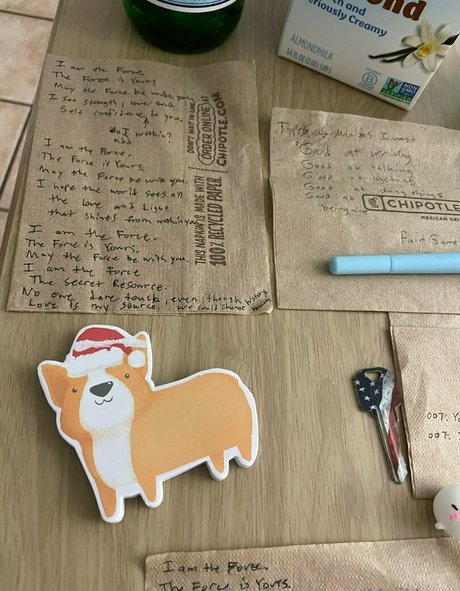 I am the Force
The Force is Yours
May the Force be with you.
I see strength, love and
Self confidence In you.
do I within?
add
I am the Force.
The Force is Yours.
May the Force be with you.
I hope the world sees all
the love and Light
that shines from within you
I am the Force.
The Force is Yours.
May the Force be with you.
I am the Force
The secret Resource.
No one dare touch, even though history
Love is my source. we could change
DON'T WAIT IN LINE.
ORDER ONLINE AT
CHIPOTLE.COM
THIS NAPKIN IS MADE WITH
100% RECYCLED PAPER
ond
th and
eriously Creamy
ALMONDMILK
B
NON
GMO
I want
Good at writing
Good at talking
Good at
Good at doing things
Good at
being nice
CHIPOTLE
MEXICAN GRI
Fair Game
007. Yo
007.
I am the Force.
The Force is Yours.